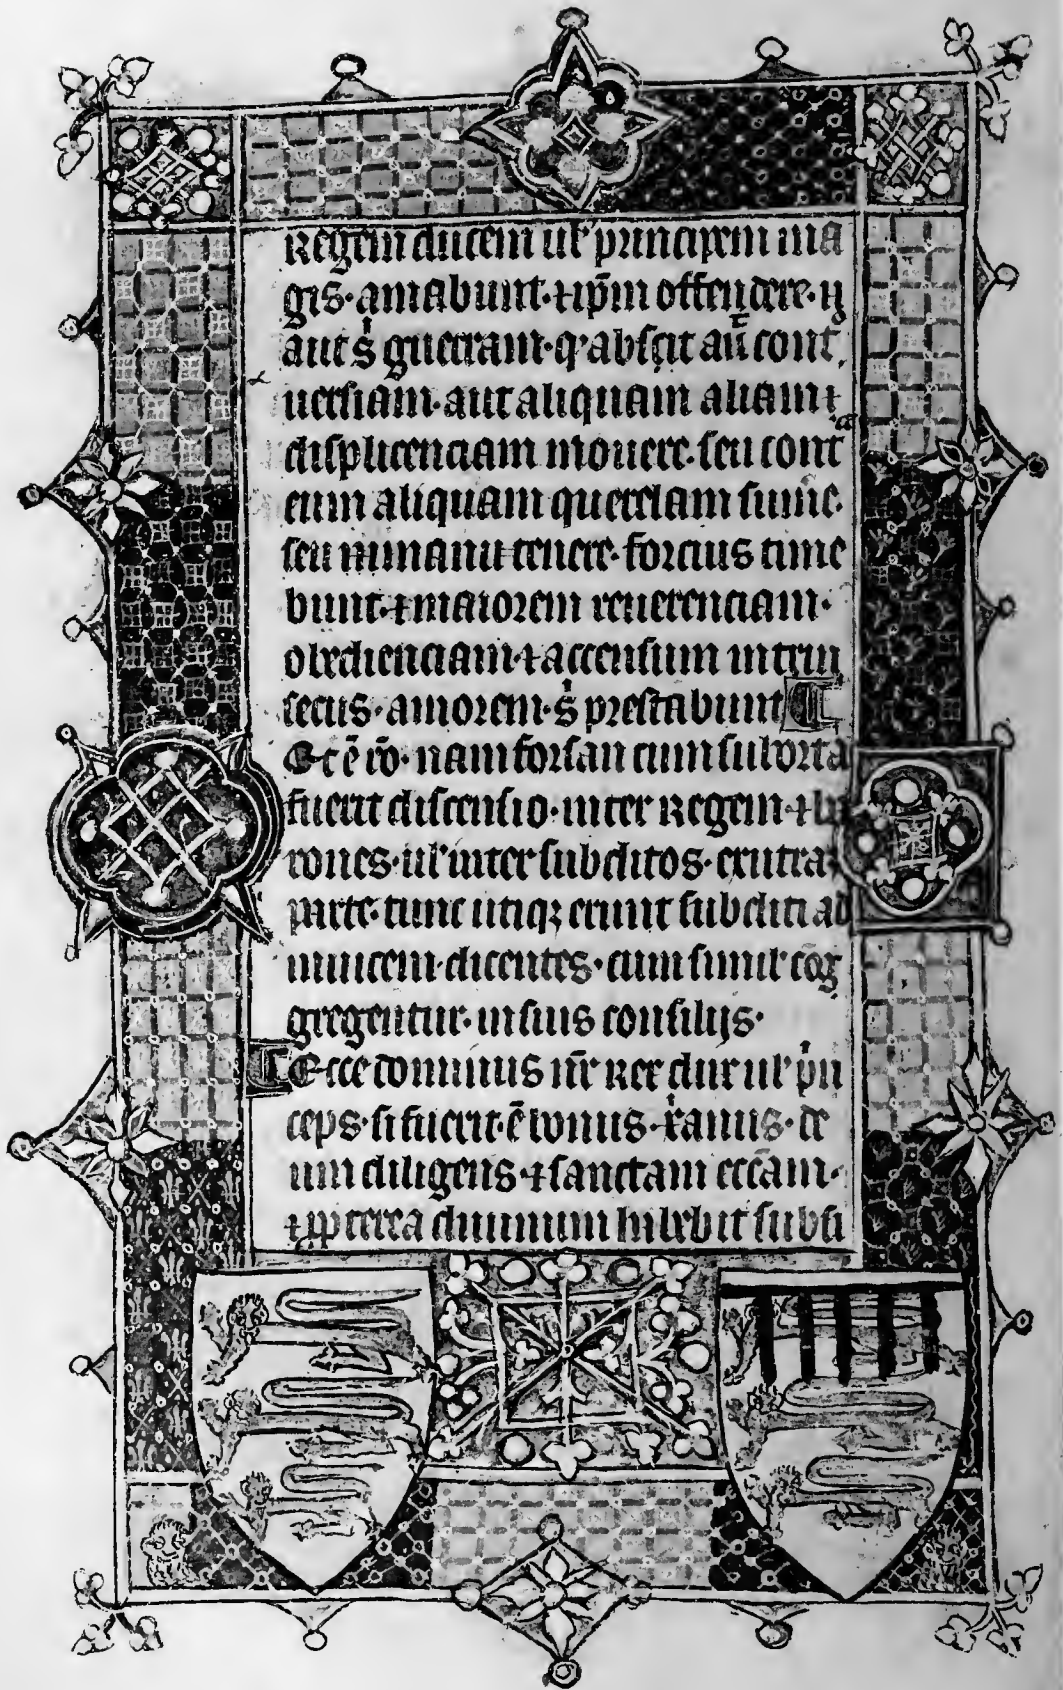 Regem ducem ul' principem ma
gis· amabunt· ⁊ ip̄m offendere· ⁊
aut s̄ guerram· q' absit aū cont
uersiam· aut aliquam aliam
displicenciam mouere· seu cont
eum aliquam querelam sume·
seu in manu tenere· forcius time
bunt· ⁊ maiorem reuerenciam·
obedienciam· ⁊ accensum intrin
secus· amorem· s̄ prestabunt
Et ē rō· nam forsan cum suborta
fuerit discensio· inter Regem· ⁊ ba
rones· ul' inter subditos· ex utra
parte· tunc utiqꝫ erunt subditi ad
inuicem· dicentes· cum simul cōg
gregentur· in suis consilijs·
Ecce dominus nr̄ Rex dux ul' prin
ceps· si fuerit· ē bonus· xp̄ianus· de
um diligens· ⁊ sanctam ecc̄am·
⁊ ꝓpterea diuinum habebit subsi